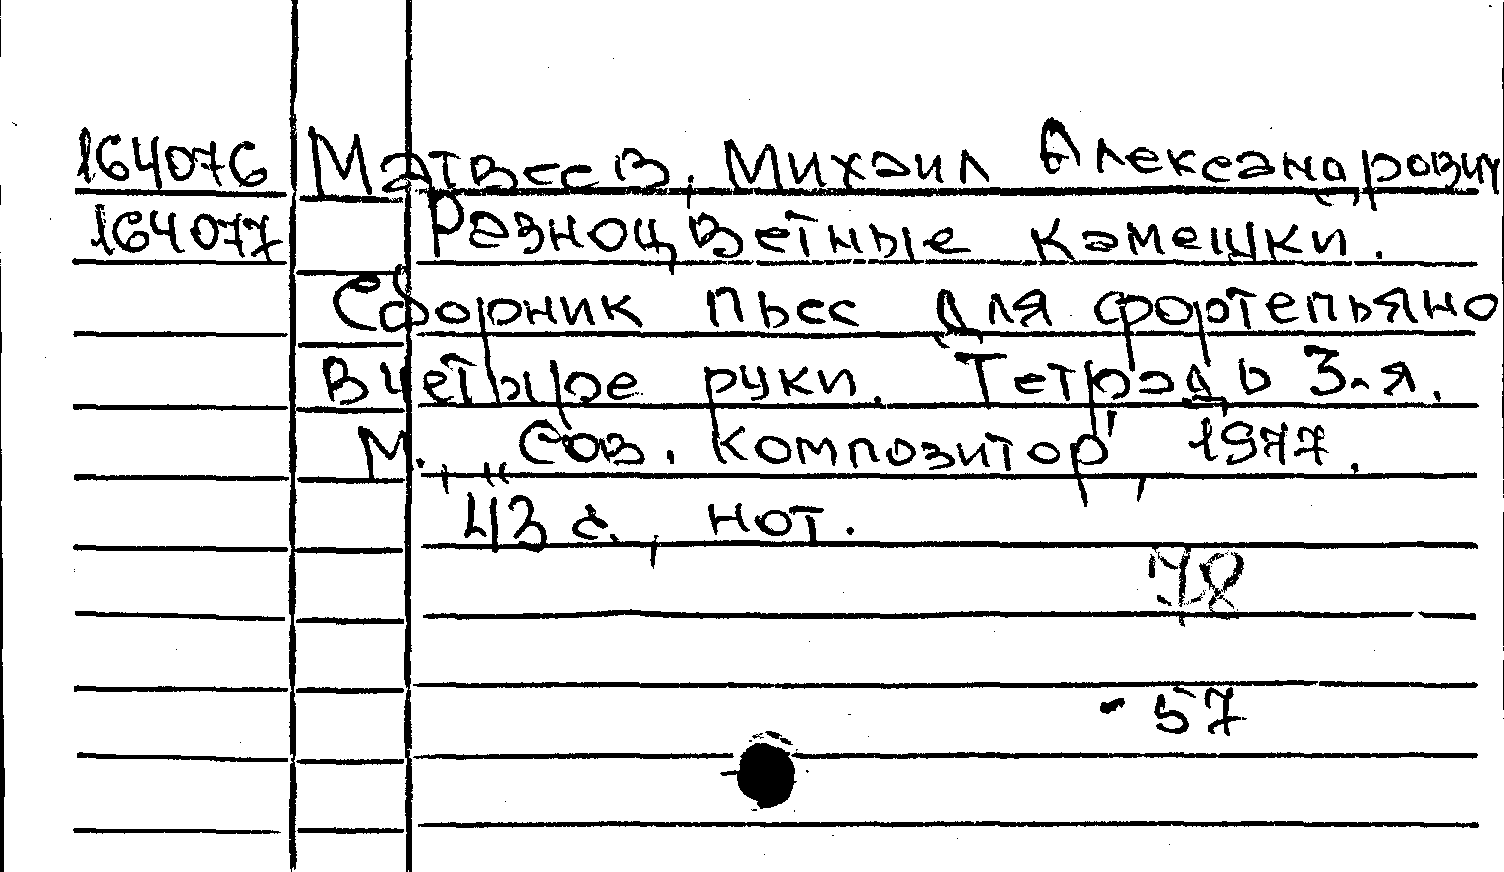 164076 Матвеев, Михаил Александрович
164077 Разноцветные камешки.
Сборник пьес для фортепьяно
в четыре руки. Тетрадь 3-я.
М., "Сов. композитор", 1977.
43 с., нот.
78
- 57